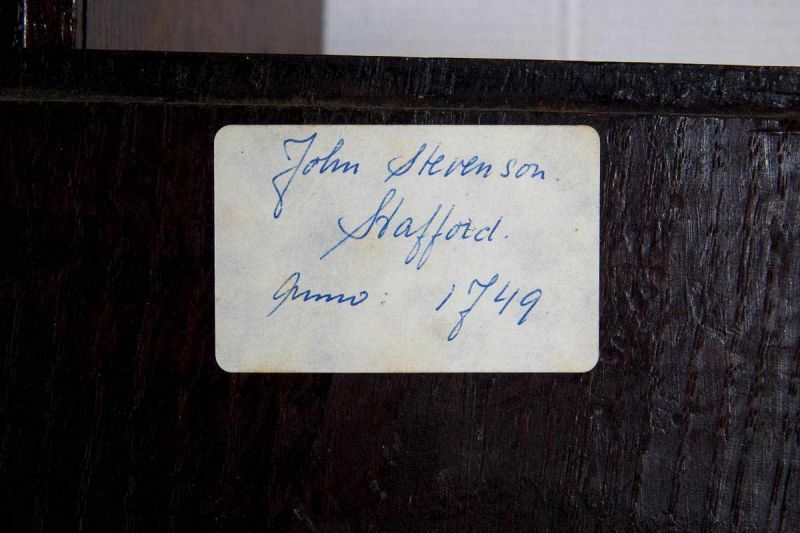 John Stevenson.
Stafford.
Anno: 1749